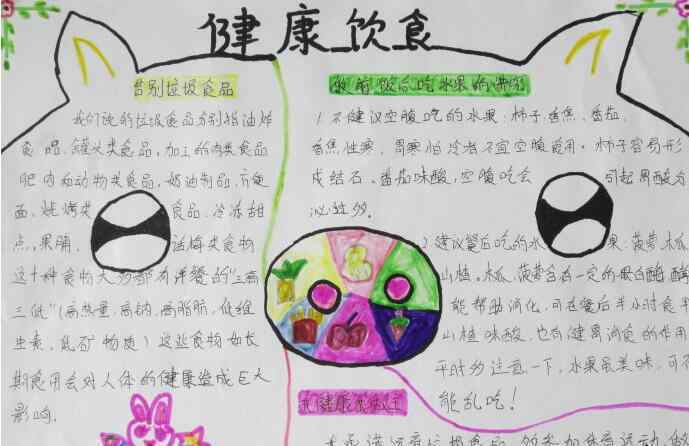 健康饮食
告别垃圾食品
我们说的垃圾食品分别指油炸
食品、罐头类食品、加工的肉类食品
肥肉和动物类食品、奶油制品、方便
面、烧烤类食品、冷冻甜
点、果脯、话梅类食物
这十种食物大多都有许餐的“三高
三低”(高热量、高钠、高脂肪、低维
生素、低矿物质)这些食物如长
期食用会对人体的健康造成巨大
影响。
饭前饭后吃水果的讲究
1.不建议空腹吃的水果:柿子、香蕉、番茄、
香蕉性寒、胃寒怕冷者不宜空腹食用。柿子容易形
成结石、番茄味酸,空腹吃会引起胃酸分
泌过多。
2.建议餐后吃的水果:菠萝、木瓜
山楂。木瓜、菠萝含有一定的蛋白酶
能帮助消化,可在餐后半小时食
山楂味酸,也有健胃消食的作用
平时多注意一下,水果虽美味,可不
能乱吃!
健康